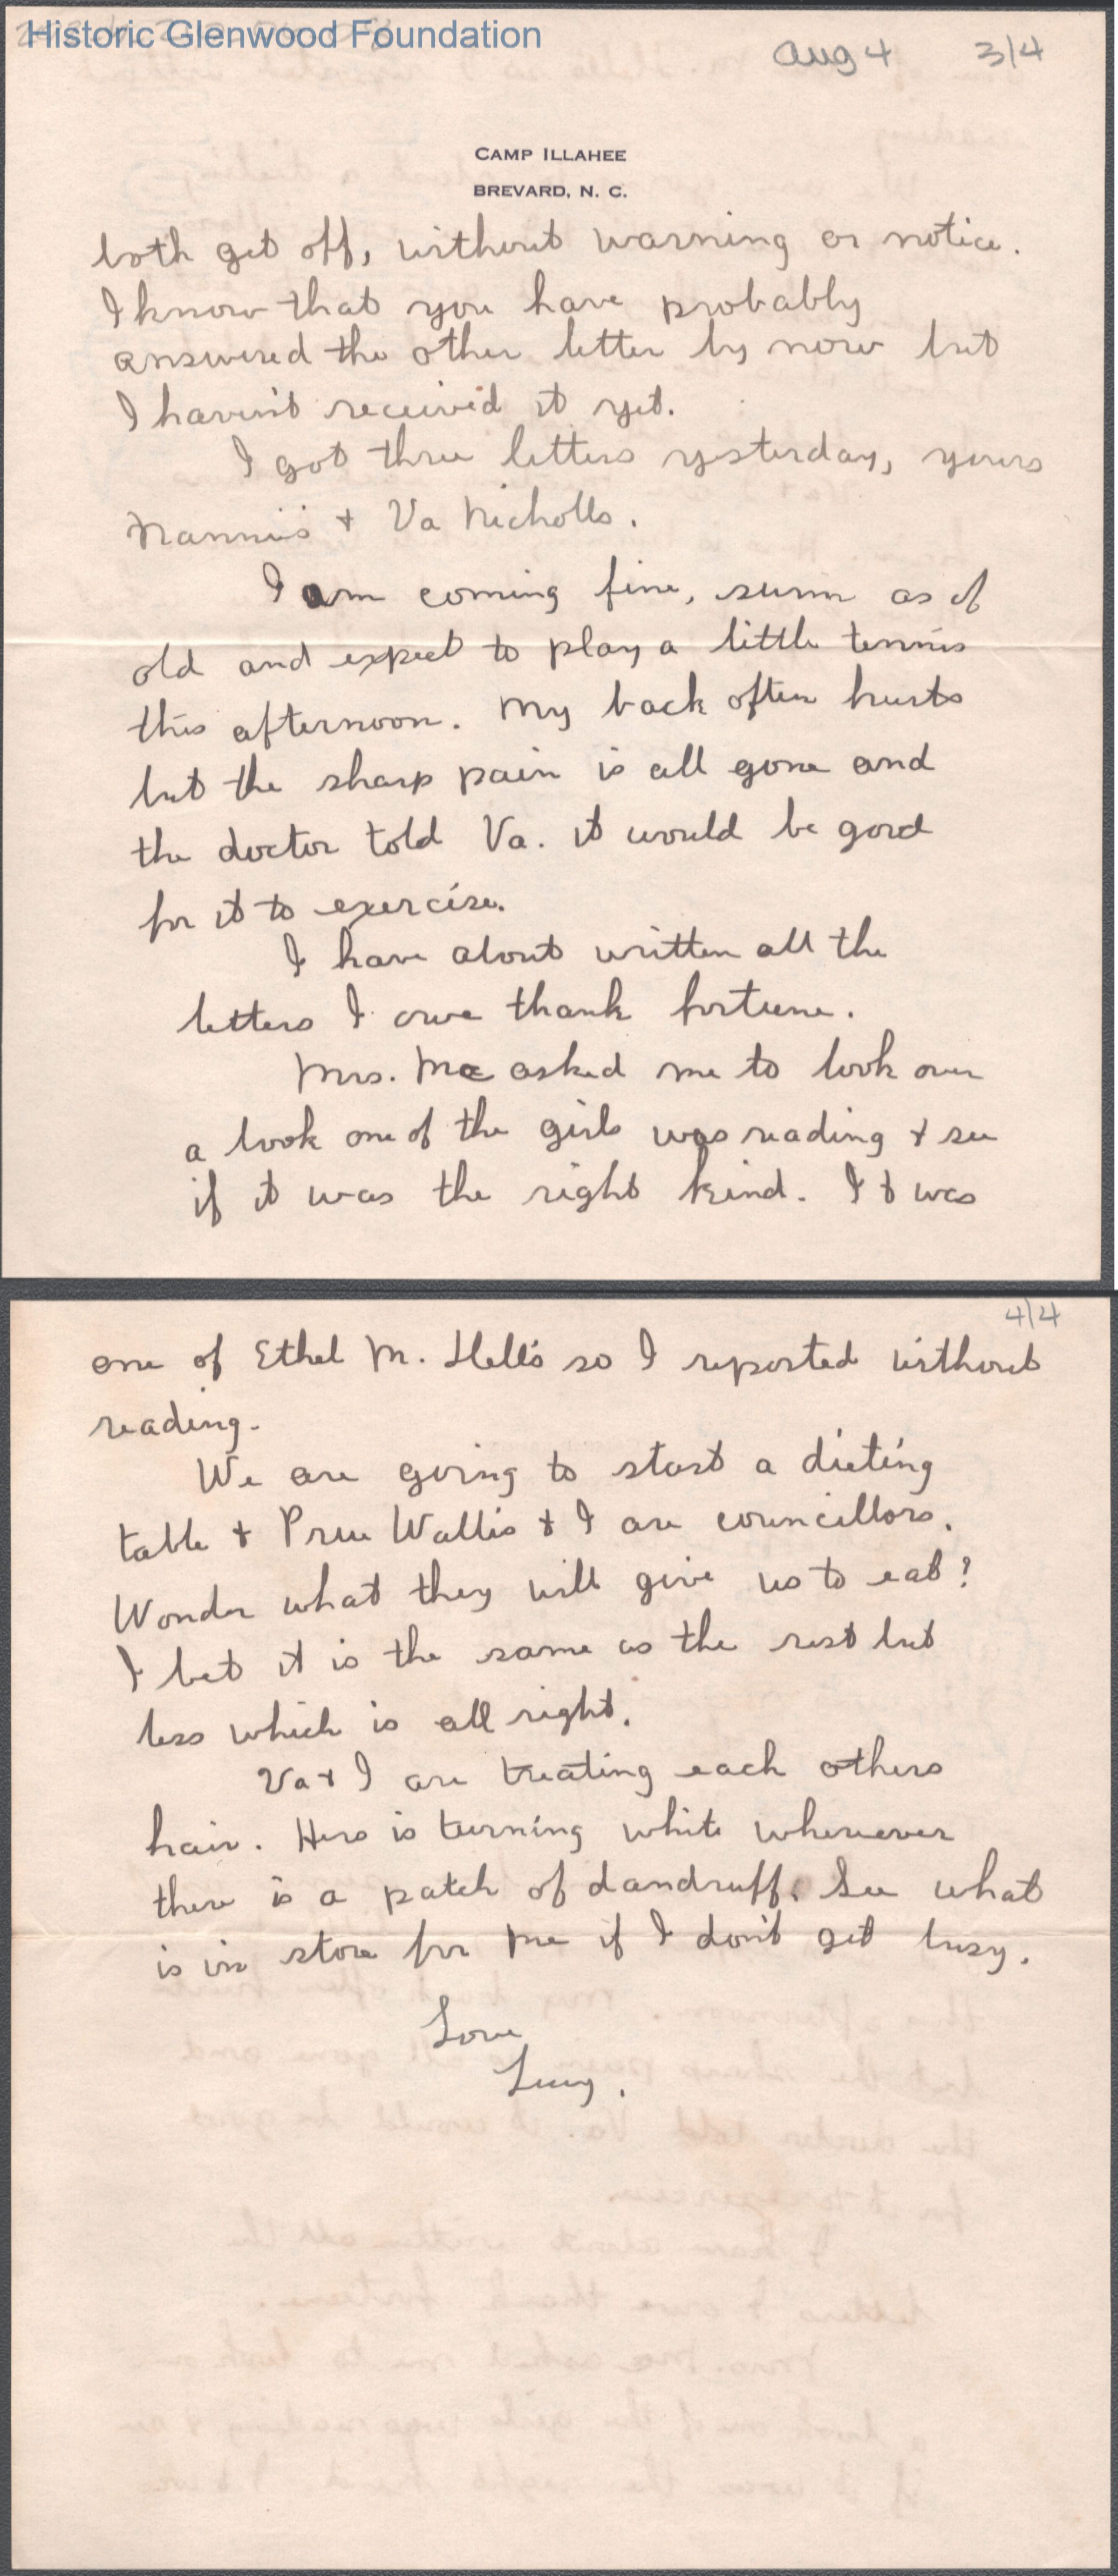 Historic Glenwood Foundation
Aug 4 3/4
CAMP ILLAHEE
BREVARD, N. C.
both get off, without warning or notice.
I know that you have probably
answered the other letter by now but
I haven't received it yet.
I got three letters yesterday, yours
Nannie's + Va Nicholls.
I am coming fine, swim as of
old and expect to play a little tennis
this afternoon. My back often hurts
but the sharp pain is all gone and
the doctor told Va. it would be good
for it to exercise.
I have about written all the
letters I owe thank fortune.
Mrs. Mc asked me to look over
a book one of the girls was reading + see
if it was the right kind. It was
4/4
one of Ethel M. Dell's so I reported without
reading.
We are going to start a dieting
table + Prue Wallis + I are councillors.
Wonder what they will give us to eat?
I bet it is the same as the rest but
less which is all right.
Va + I are treating each others
hair. Hers is turning white wherever
there is a patch of dandruff. See what
is in store for me if I don't get busy.
Love
Lucy.